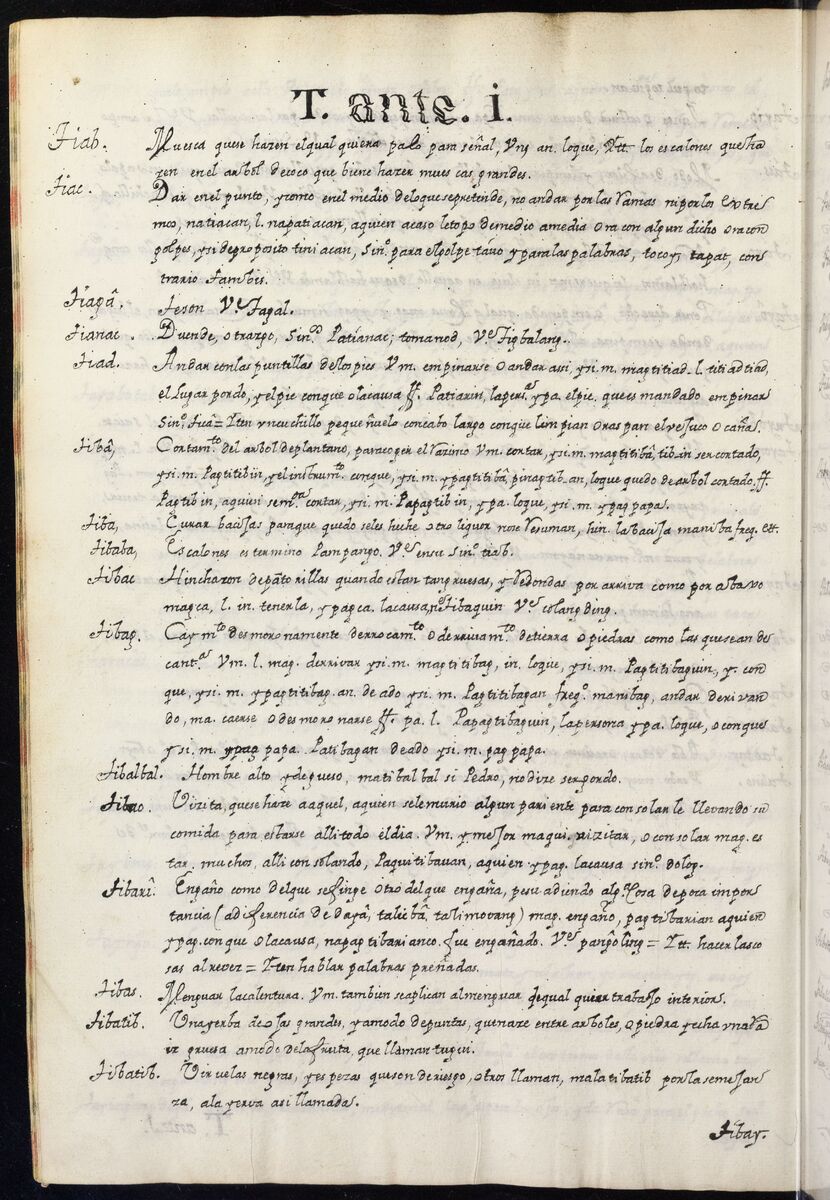 T. ante. i.
Tiab. Muesca que se hazen el qual quiera palo para señal, Vm, an. loque, Itt. los escalones que sha
zen en el arbol de coco que biene hazer muescas grandes.
Tiac. Dar en el punto, y como en el medio de loque sepretende, no andar por las Ramas ni por los extre
mos, natiacan, l. napatiacan, aquien acaso letopo de medio amedia Ora con algun dicho Ora con
golpes, y si de proposito tini acan, Sin.º para el golpe tavo y para las palabras, tocoy, tapat, con
trario Tambis.
Tiagâ. Teson Vᵉ Tagal.
Tianac. Duende, o trazgo, Sin.º Patianac; tomanod, Vᵉ Tigbalang.
Tiad. Andar con las puntillas de los pies Vm. empinarse O andar assi, y si. m. magtitiad. l. titi ad tiad,
el Lugar por do, y el pie conque o lacausa ff. Patiarin, la pers.ª ypa. el pie. que es mandado empinar
Sin.º Ticâ = Iten un cuchillo pequeñuelo concabo largo conque limpian O raspan el vejuco O cañas.
Tibâ, Cortam.ᵗᵒ del arbol de plantano, para coger el Razimo Vm. cortar, y si. m. magtitibâ, tibain ser cortado,
y si. m. Pagtitibin y el instrum.ᵗᵒ conque, y si. m. ypagtitibâ, pinagtib. an, loque quedo de arbol cortado. ff.
Pagtib in, aquien cortar, y si. m. Papagtib in, y pa. loque, y si. m. ypag papa.
Tiba, Curar bacijas paraque quedo seles heche otro liquor no se Resuman, hin. la bacija maniba freq. ett.
Tibaba, Escalones es termino Pampango. Vᵉ en su Sin.º tiab.
Tibac Hinchazon de pãtorillas quando estan tan gruesas, y Redondas por arriva como por abaxo
magca, l. in. tenerla, ypagca. lacausa, Tibaquin Vᵉ colangding.
Tibag. Caym.ᵗᵒ desmoronamente derrocam.ᵗᵒ O derrivam.ᵗᵒ de tierra O piedras como las que sean de
cant.ª Vm. l. mag. derrivar y si. m. magtitibag, in. loque, y si. m. Pagtitibaguin, y. con
que, y si. m. ypagtitibag. an. de ado y si. m. Pagtitibagan freq.º manibag, andar derivan
do, ma. caerse O desmoronarse ff. pa. l. Papagtibaguin, la persona y pa. loque, o conques
y si. m. ypag papa. Patibagan de ado y si. m. pag papa.
Tibalbal. Hombre alto y de gueso, matibalbal si Pedro, no dize ser gordo.
Tibao. Vizita, que se haze a aquel, aquien selemurio algun pariente para consolarle llevando su
comida para estarse alli todo el dia. Vm. y mejor maqui. vizitar, O consolar mag. es
tar. muchos, alli consolando, Paquitibauan, aquien ypag. lacausa sin.º dolog.
Tibarî. Engaño como del que sefinge Otro del que engaña, pesuadiendo alg.ª Cosa de poca impor
tancia (a diferencia de dayâ, taliebâ, talimovang) mag. engaño, pagtibarian aquien
ypag. con que O lacausa, napagtibarianco. fue engañado. Vᵉ pangôling = Itt. hacer las co
sas al revez = Iten hablar palabras preñadas.
Tibas. Menguar la calentura. Vm. tambien seaplican al menguar de qual quier trabajo interior.
Tibatib. Una yerba de ojas grandes, y amodo de puntas, que naze entre arboles, o piedra y echa vna
iz gruesa amodo dela fruta, que llaman tugui.
Tibatib. Viruelas negras, y espezas que son de riesgo, otros llaman, mala tibatib por la semejan
za, ala yerva asi llamada.
Tibay.